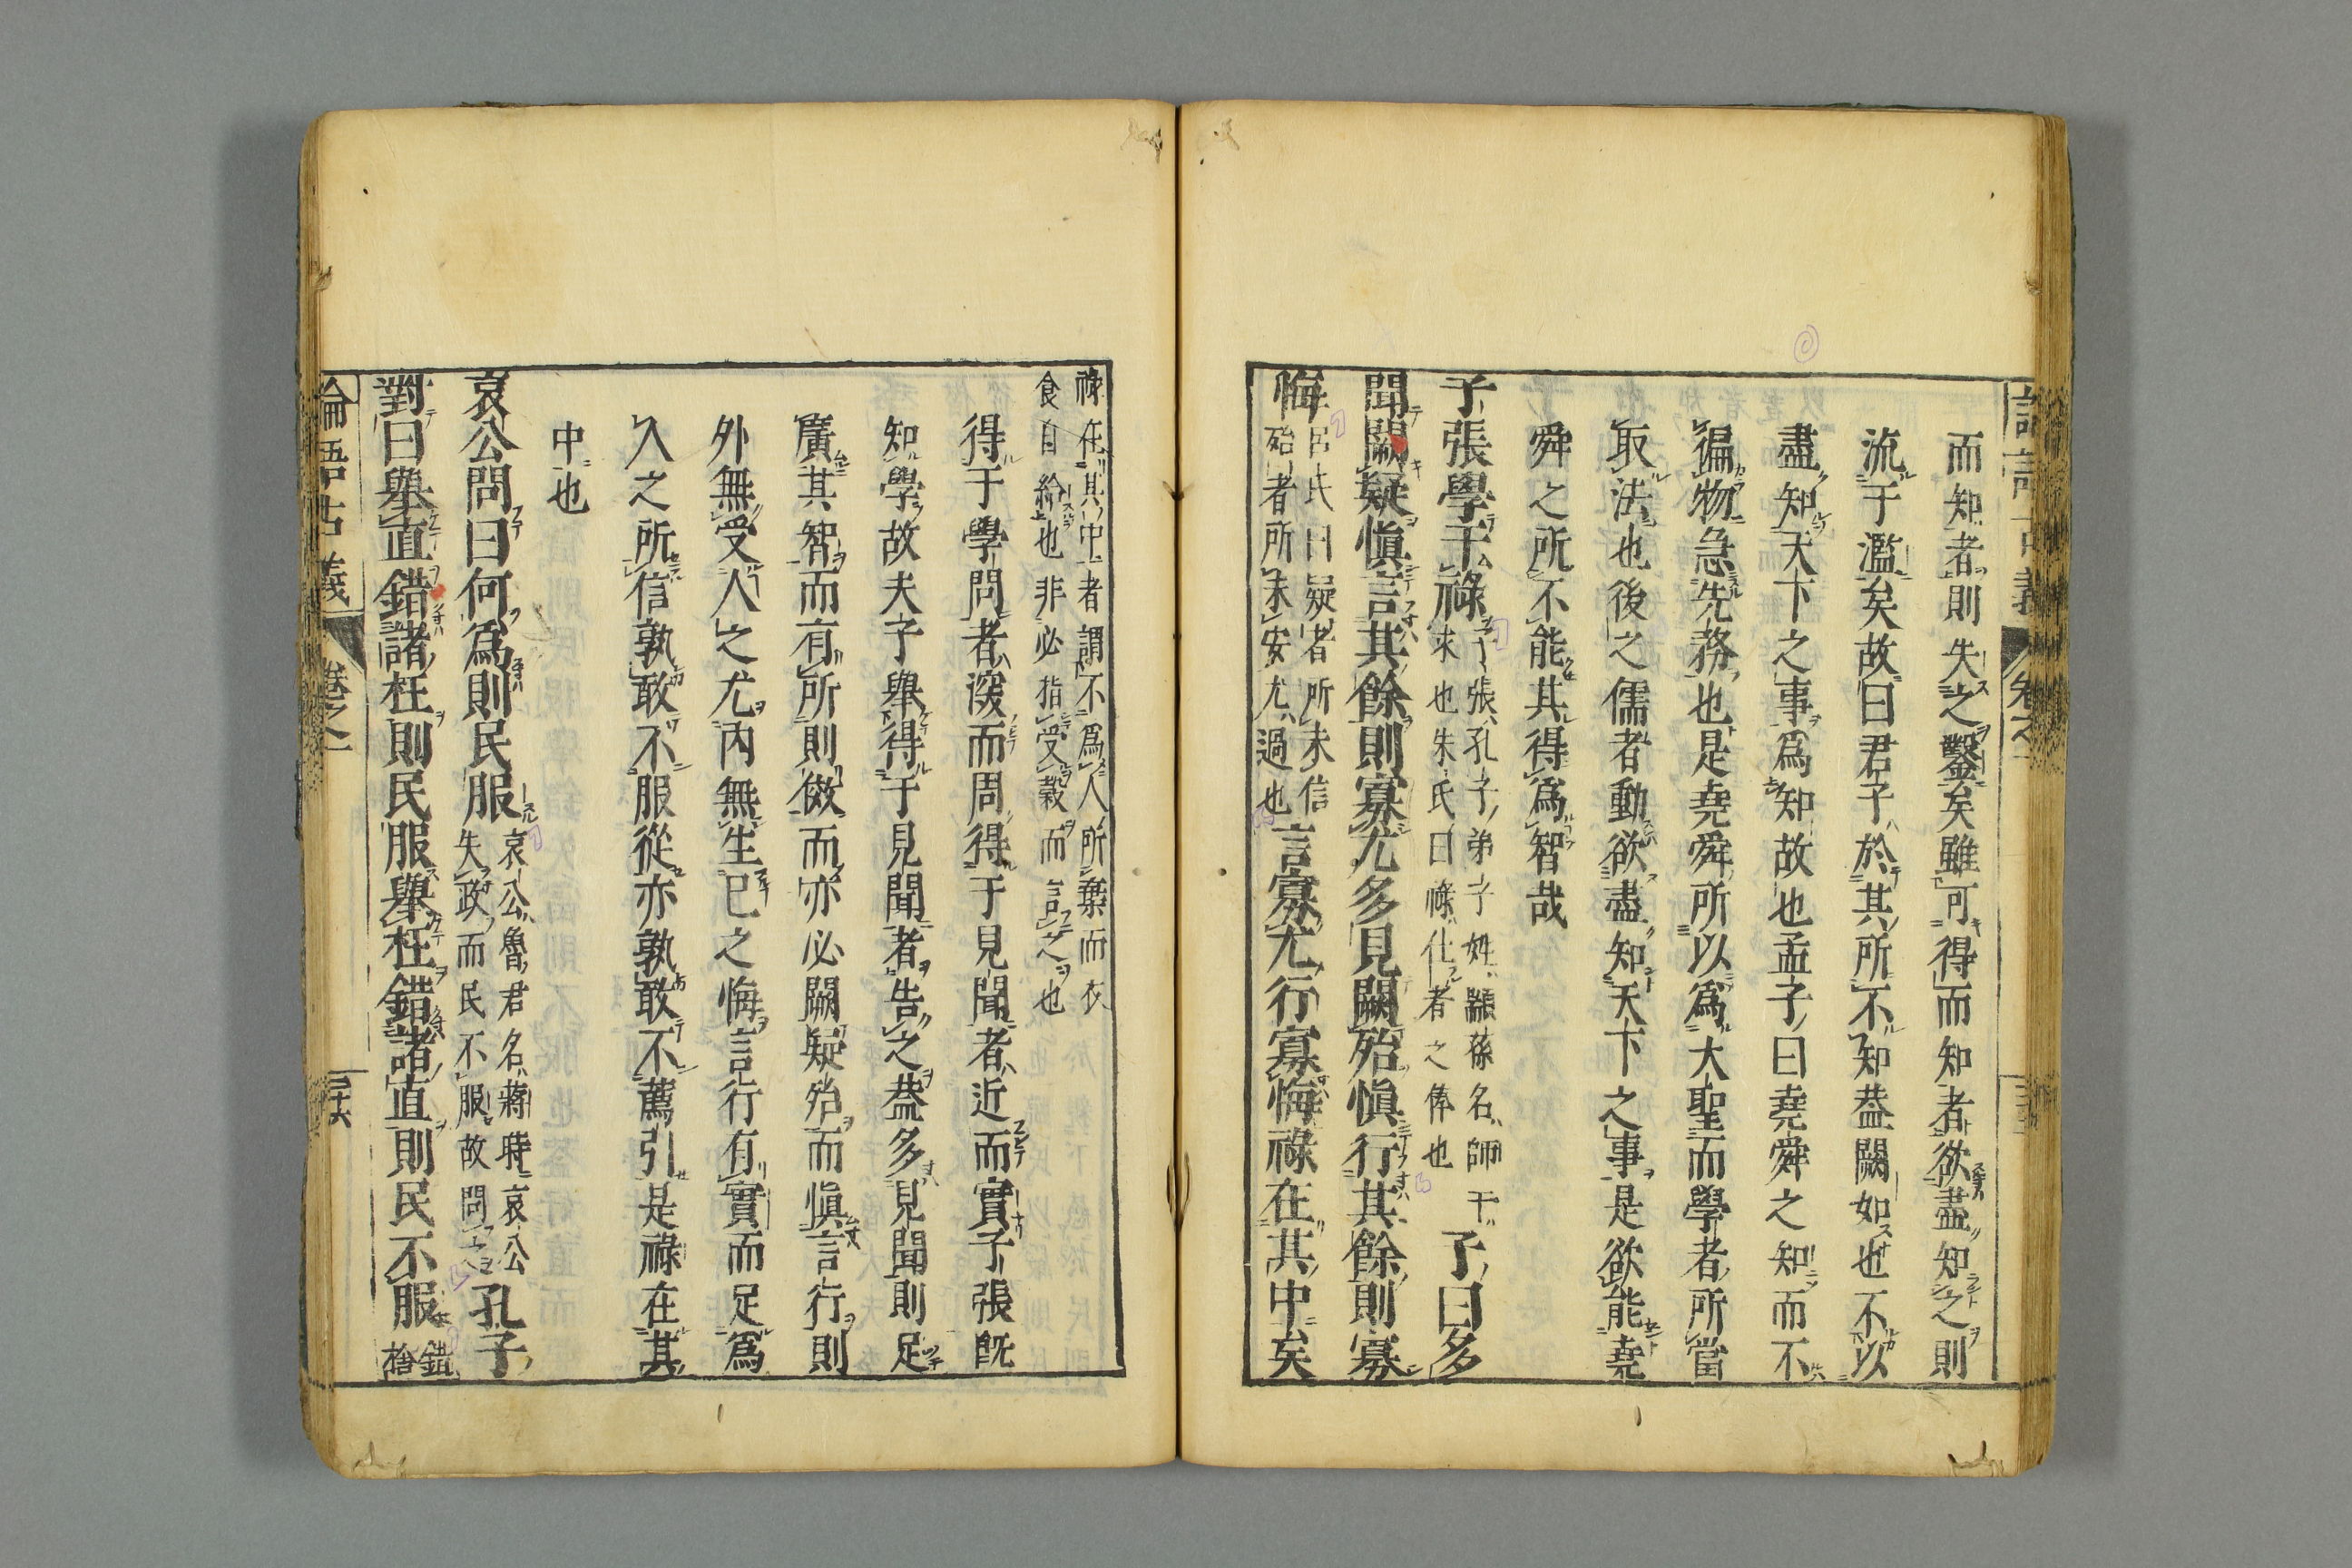 而知者則失之鑿矣雖可得而知者欲盡知之則
流于濫矣故曰君子於其所不知蓋闕如也不以
盡知天下之事爲知故也孟子曰堯舜之知而不
徧物急先務也是堯舜所以爲大聖而學者所當
取法也後之儒者動欲盡知天下之事是欲能堯
舜之所不能其得爲智哉
子張學干祿
子張孔子弟子姓顓孫名師干
求也朱氏曰祿仕者之俸也
子曰多
聞闕疑愼言其餘則寡尤多見闕殆愼行其餘則寡
悔
呂氏曰疑者所未信
殆者所未安尤過也
言寡尤行寡悔祿在其中矣
祿在其中者謂不爲人所棄而衣
食自給也非必指受穀而言之也
得于學問者邃而周得于見聞者近而實子張旣
知學故夫子舉得于見聞者告之蓋多見聞則足
廣其智而有所則傚而亦必闕疑殆而愼言行則
外無受人之尤內無生己之悔言行有實而足爲
人之所信孰敢不服從亦孰敢不薦引是祿在其
中也
哀公問曰何爲則民服
哀公魯君名蔣時哀公
失政而民不服故問之
孔子
對曰舉直錯諸枉則民服舉枉錯諸直則民不服
錯
捨
論語古義
卷之一
二十六